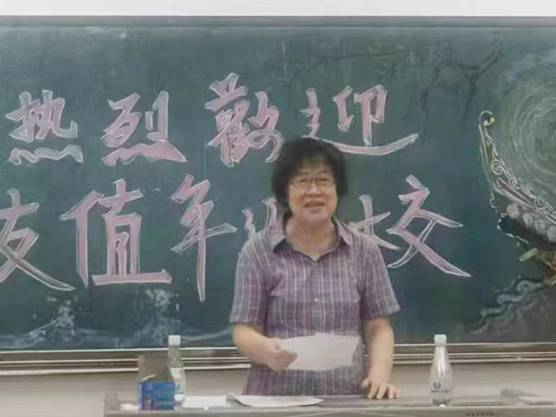 热烈歡迎
友值年 校